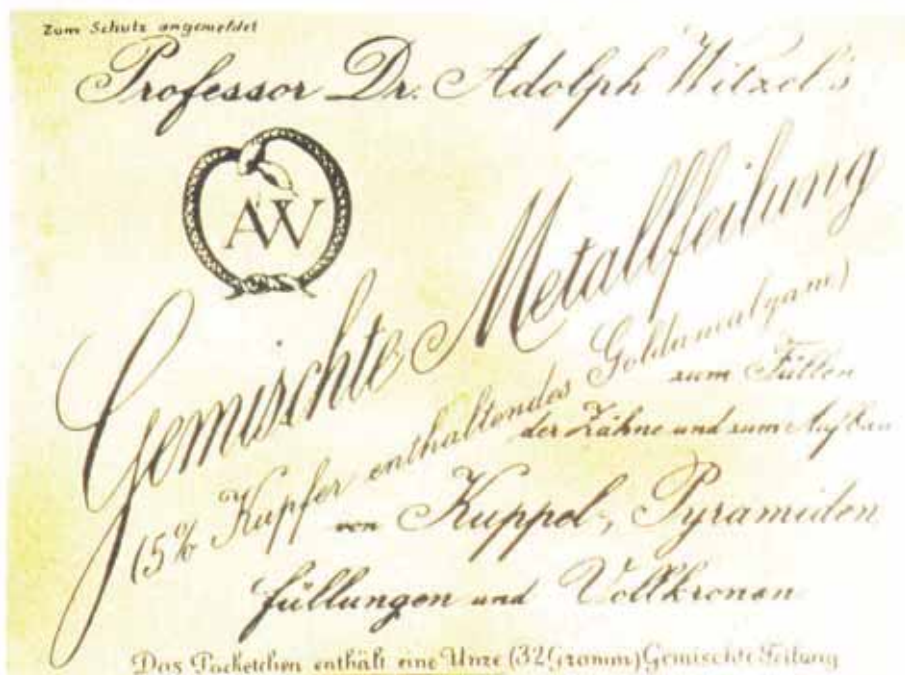 Zum Schutz angemeldet
Professor Dr. Adolph Witzel's
AW
Gemischte Metallfeilung
(5% Kupfer enthaltendes Goldamalgam)
zum Füllen
der Zähne und zum Aufbau
von Kuppel-, Pyramiden
füllungen und Vollkronen
Das Packetchen enthält eine Unze (32 Gramm) Gemischte Feilung